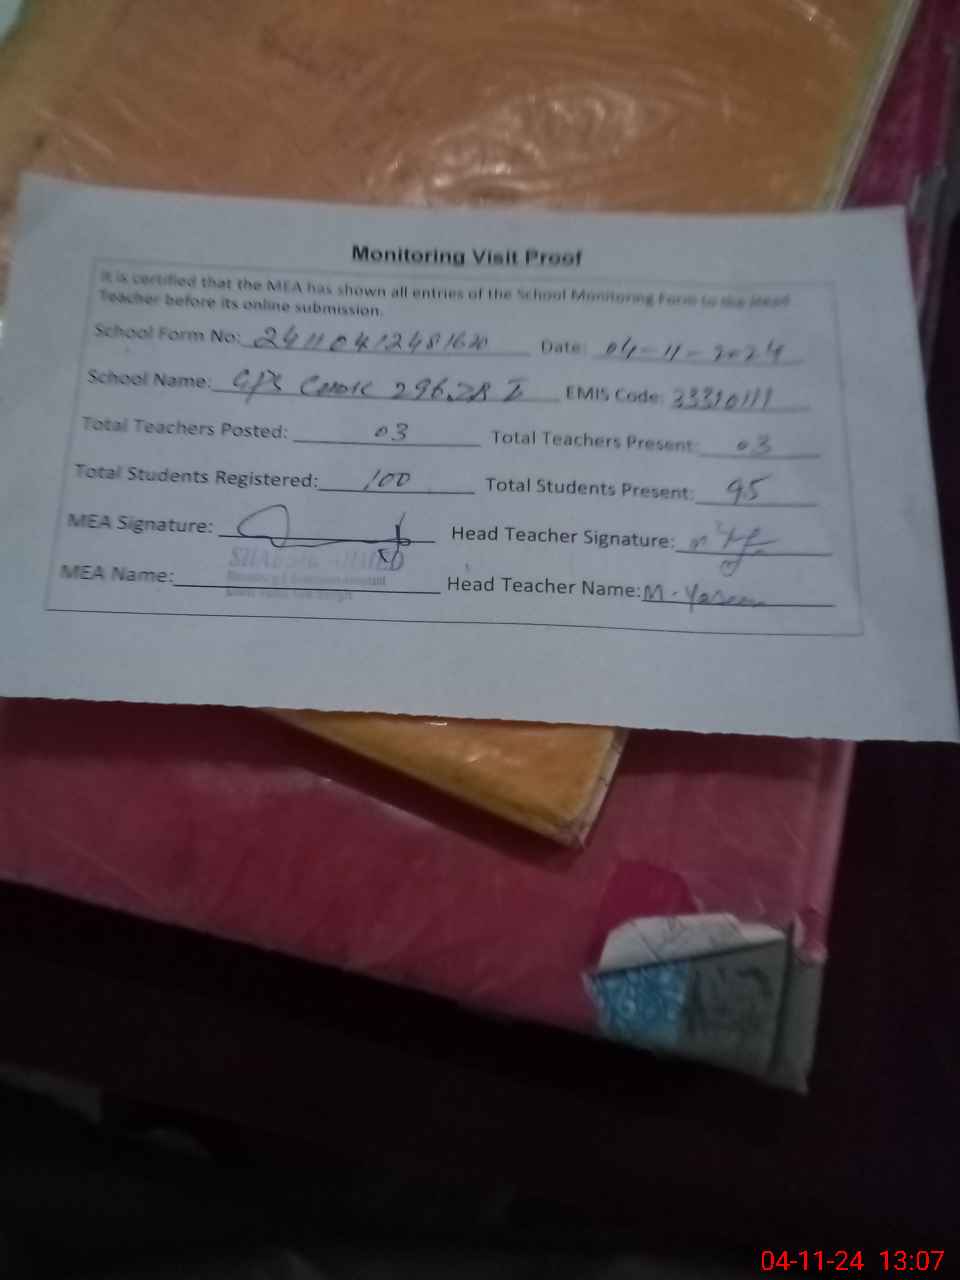 Monitoring Visit Proof
It is certified that the MEA has shown all entries of the School Monitoring Form to the Head
Teacher before its online submission.
School Form No: Date: 04-11-2024
School Name: GPS 296.2R EMIS Code: 33310111
Total Teachers Posted: 03 Total Teachers Present: 03
Total Students Registered: 100 Total Students Present: 95
MEA Signature: Head Teacher Signature:
MEA Name: Head Teacher Name: M. Yaseen
04-11-24 13:07